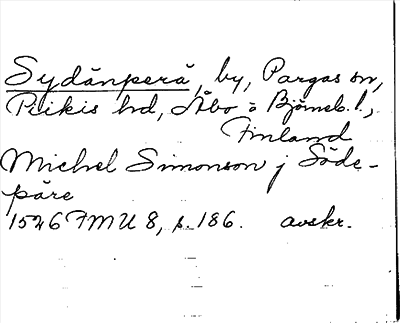 Sydänperä, by, Pargas sn,
Piikis hd, Åbo o Björneb. l.,
Finland
Michel Simonson j Söde-
päre
1546 FMU 8, s. 186. avskr.